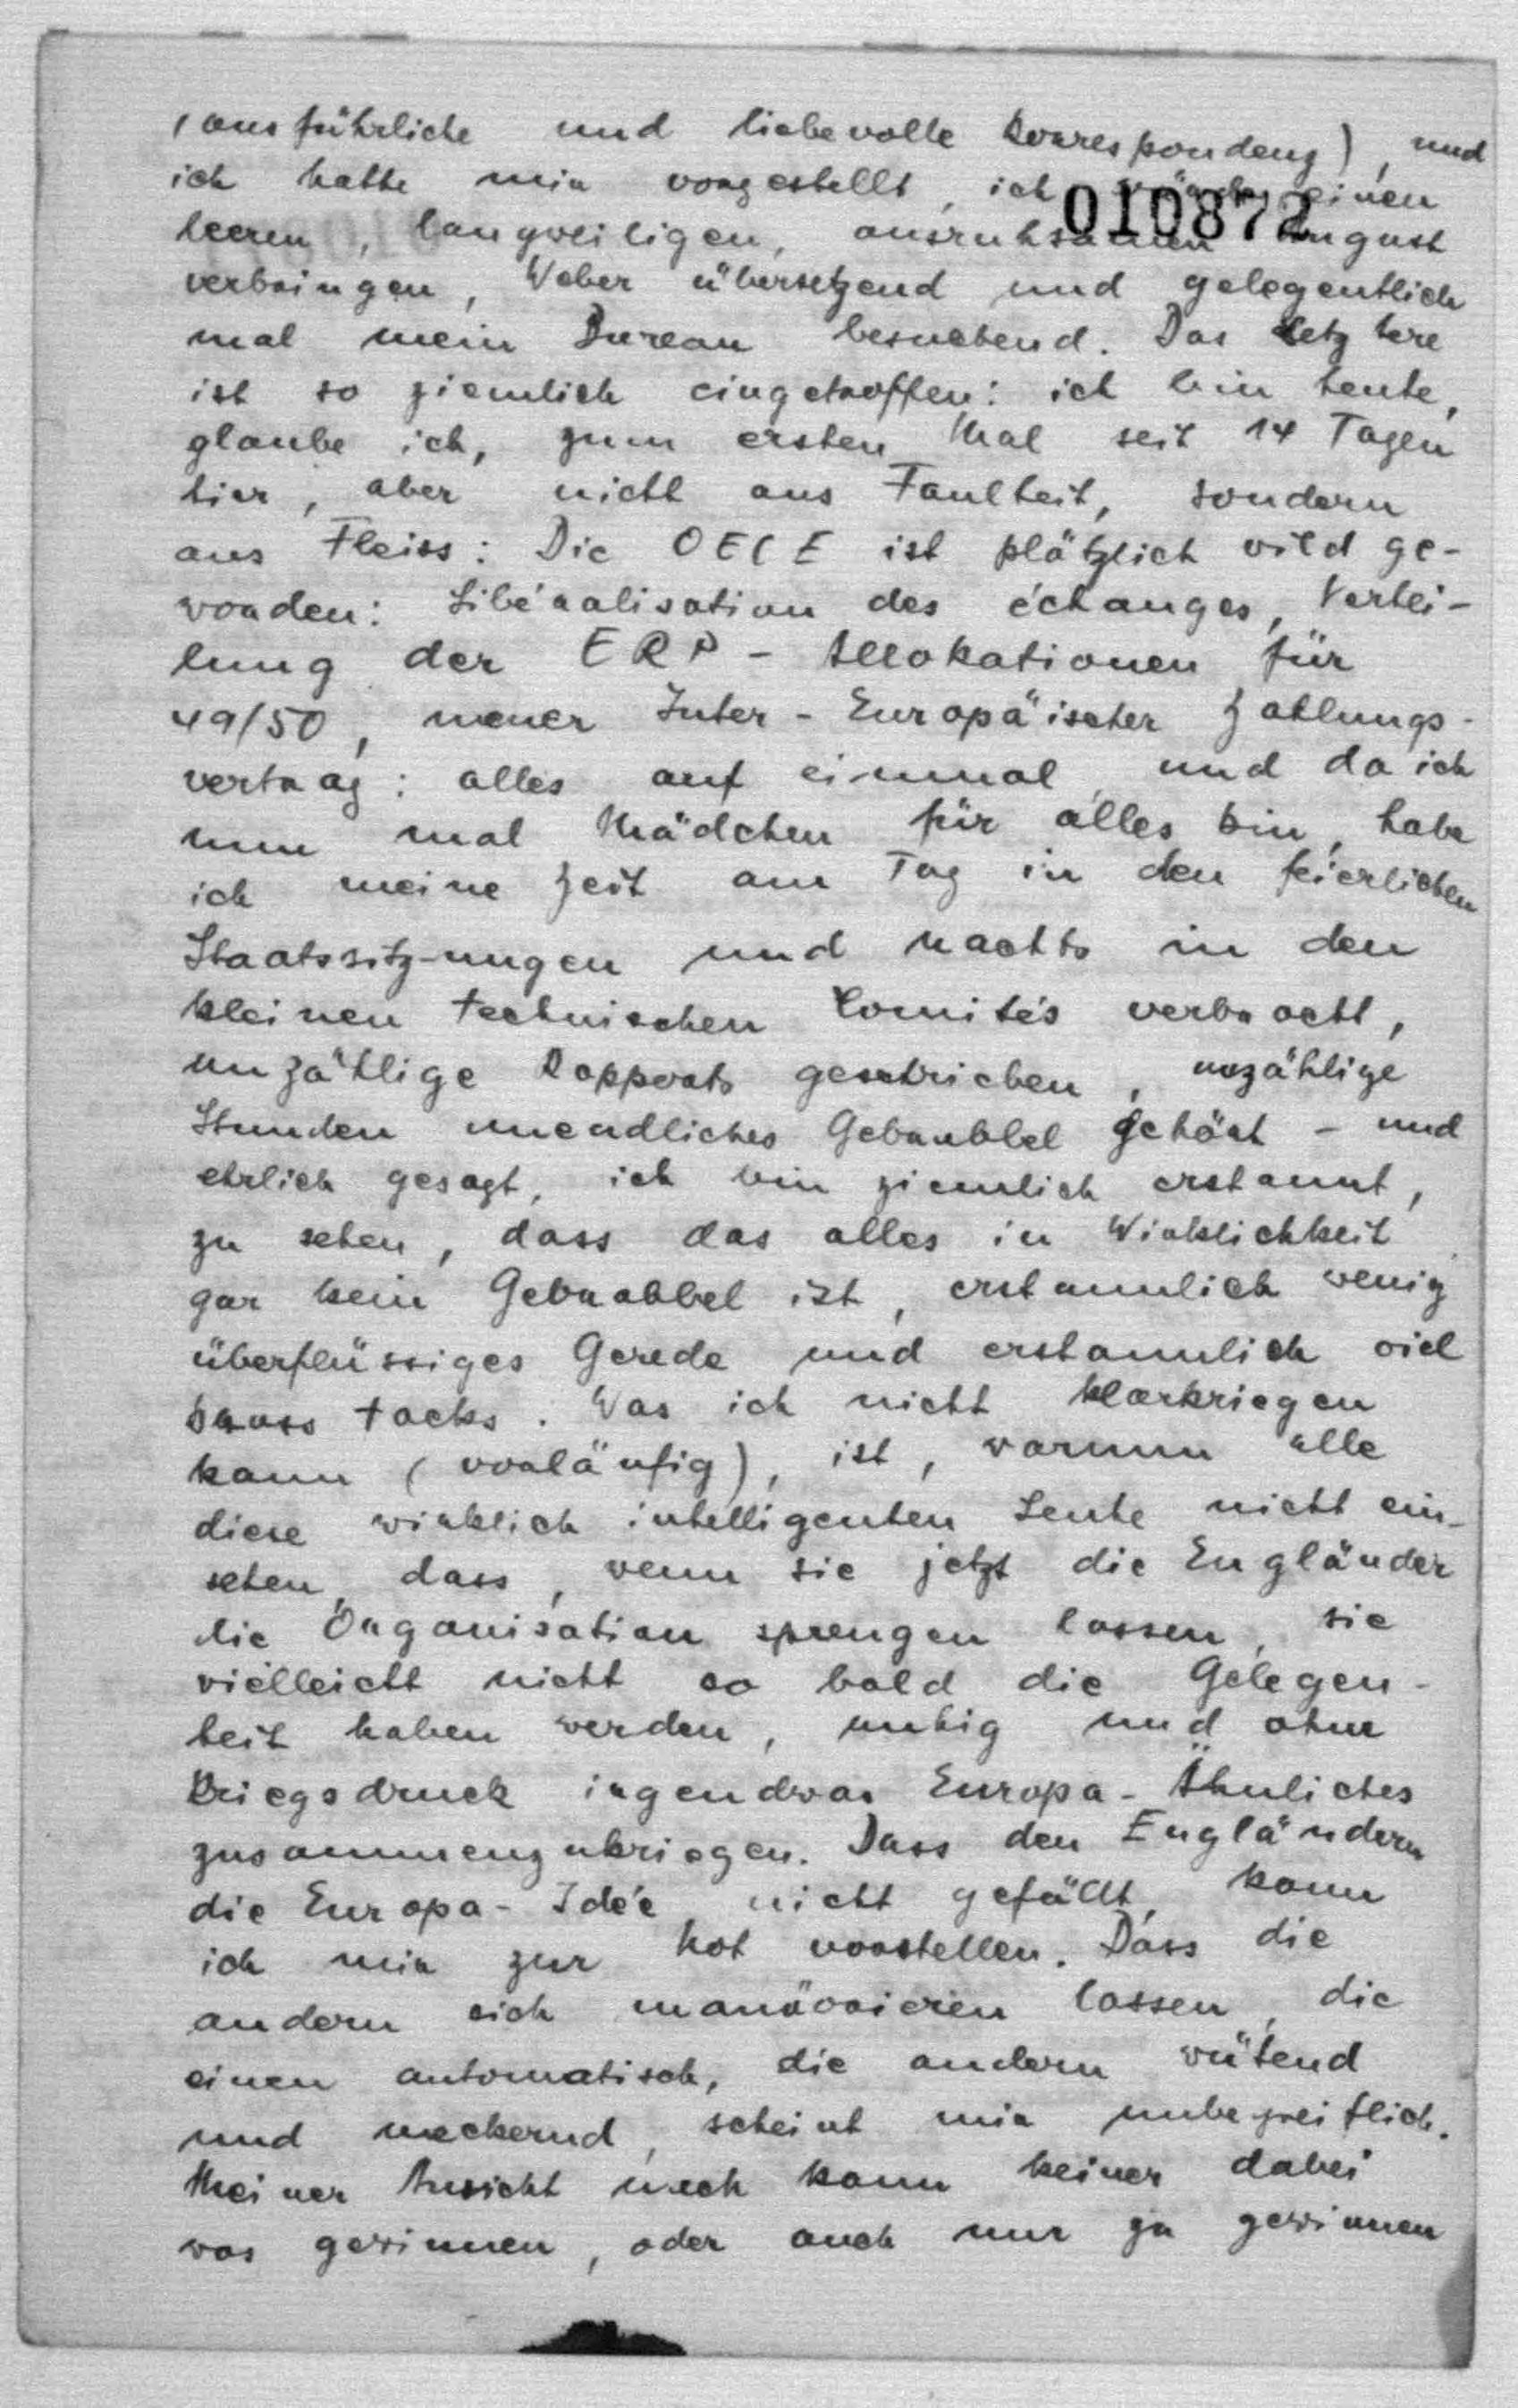 (ausführliche und liebevolle Korrespondenz), und
ich hatte mir vorgestellt, ich würde einen
010872
leeren, langweiligen, ausruhsamen August
verbringen, Weber übersetzend und gelegentlich
mal mein Bureau besuchend. Das letztere
ist so ziemlich eingetroffen: ich bin heute,
glaube ich, zum ersten Mal seit 14 Tagen
hier, aber nicht aus Faulheit, sondern
aus Fleiss: Die OECE ist plötzlich wild ge-
worden: Libéralisation des échanges, Vertei-
lung der ERP-Allokationen für
49/50, neuer Inter-Europäischer Zahlungs-
vertrag: alles auf einmal, und da ich
nun mal Mädchen für alles bin, habe
ich meine Zeit am Tag in den feierlichen
Staatssitz-ungen und nachts in den
kleinen technischen Comités verbracht,
unzählige Rapports geschrieben, unzählige
Stunden unendliches Gebrabbel gehört - und
ehrlich gesagt, ich bin ziemlich erstaunt,
zu sehen, dass das alles in Wirklichkeit
gar kein Gebrabbel ist, erstaunlich wenig
überflüssiges Gerede und erstaunlich viel
brass tacks. Was ich nicht klarkriegen
kann (vorläufig), ist, warum alle
diese wirklich intelligenten Leute nicht ein-
sehen, dass, wenn sie jetzt die Engländer
die Organisation sprengen lassen, sie
vielleicht nicht so bald die Gelegen-
heit haben werden, ruhig und ohne
Kriegsdruck irgendwas Europa-Ähnliches
zusammenzukriegen. Dass den Engländern
die Europa-Idée nicht gefällt, kann
ich mir zur Not vorstellen. Dass die
andern sich manövrieren lassen, die
einen automatisch, die andern wütend
und meckernd, scheint mir unbegreiflich.
Meiner Ansicht nach kann keiner dabei
was gewinnen, oder auch nur zu gewinnen